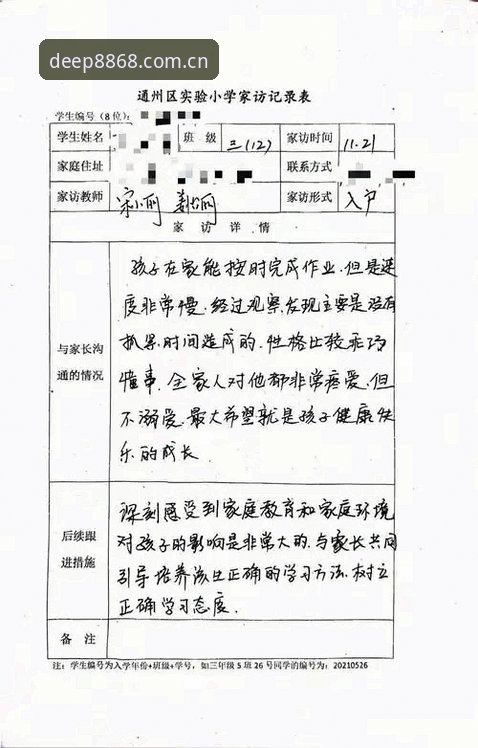 deep8868.com.cn
通州区实验小学家访记录表
学生编号（8位）：
学生姓名 班 级 三（12） 家访时间 11.21
家庭住址 联系方式
家访教师 宋小丽 家访形式 入户
家 访 详 情
与家长沟通的情况
孩子在家能按时完成作业，但是速
度非常慢，经过观察发现主要是没有
抓紧时间造成的。性格比较乖巧
懂事，全家人对他都非常疼爱，但
不溺爱，最大希望就是孩子健康快
乐的成长
后续跟进措施
深刻感受到家庭教育和家庭环境
对孩子的影响是非常大的，与家长共同
引导培养该生正确的学习方法，树立
正确学习态度．
备 注
注：学生编号为入学年份+班级+学号，如三年级5班26号同学的编号为：20210526